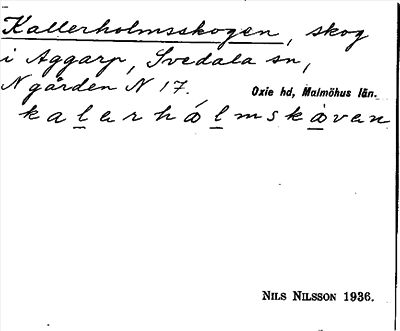 Kallerholmsskogen, skog
i Aggarp, Svedala sn,
N gården N 17. Oxie hd, Malmöhus län.
kalerhólmskåven
NILS NILSSON 1936.